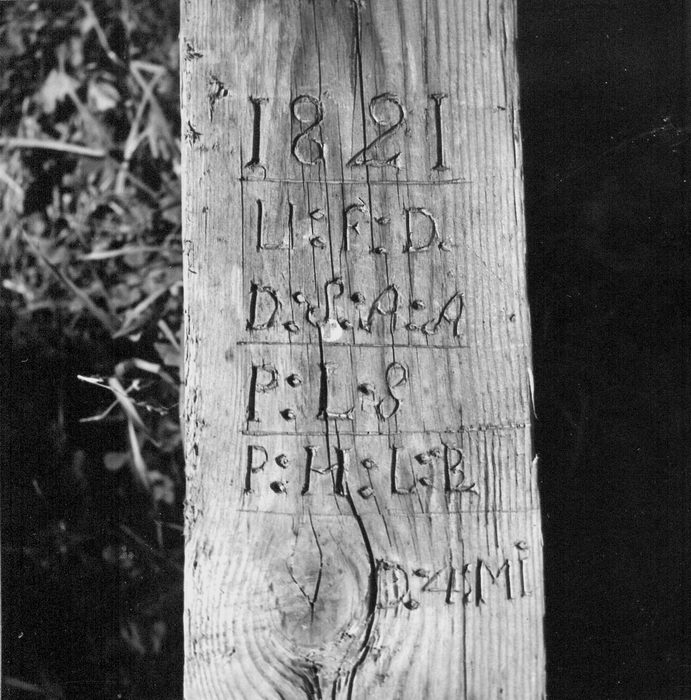 1821
U:F:D.
D:S:A:A
P:L:S
P:H:L:B
D:4:Mi